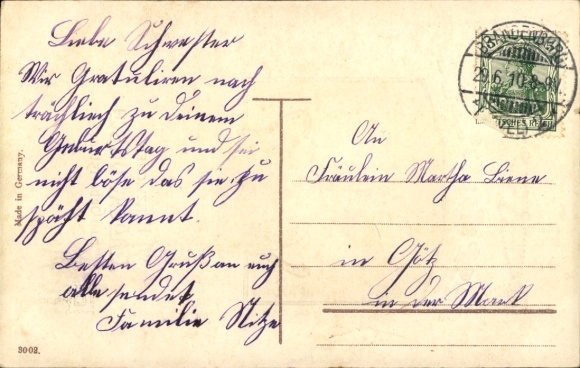 Liebe Schwester
Wir Gratuliren nach
trächliech zu deinem
Geburtstag und sei
nicht böse das sie zu
späht kannt.
Besten Gruß an euch
alle sendet
Familie Nitze
Made in Germany.
3002.
BRANDENBURG
29.6.10
An
Fräulein Martha Liene
in Götz
in der Mark